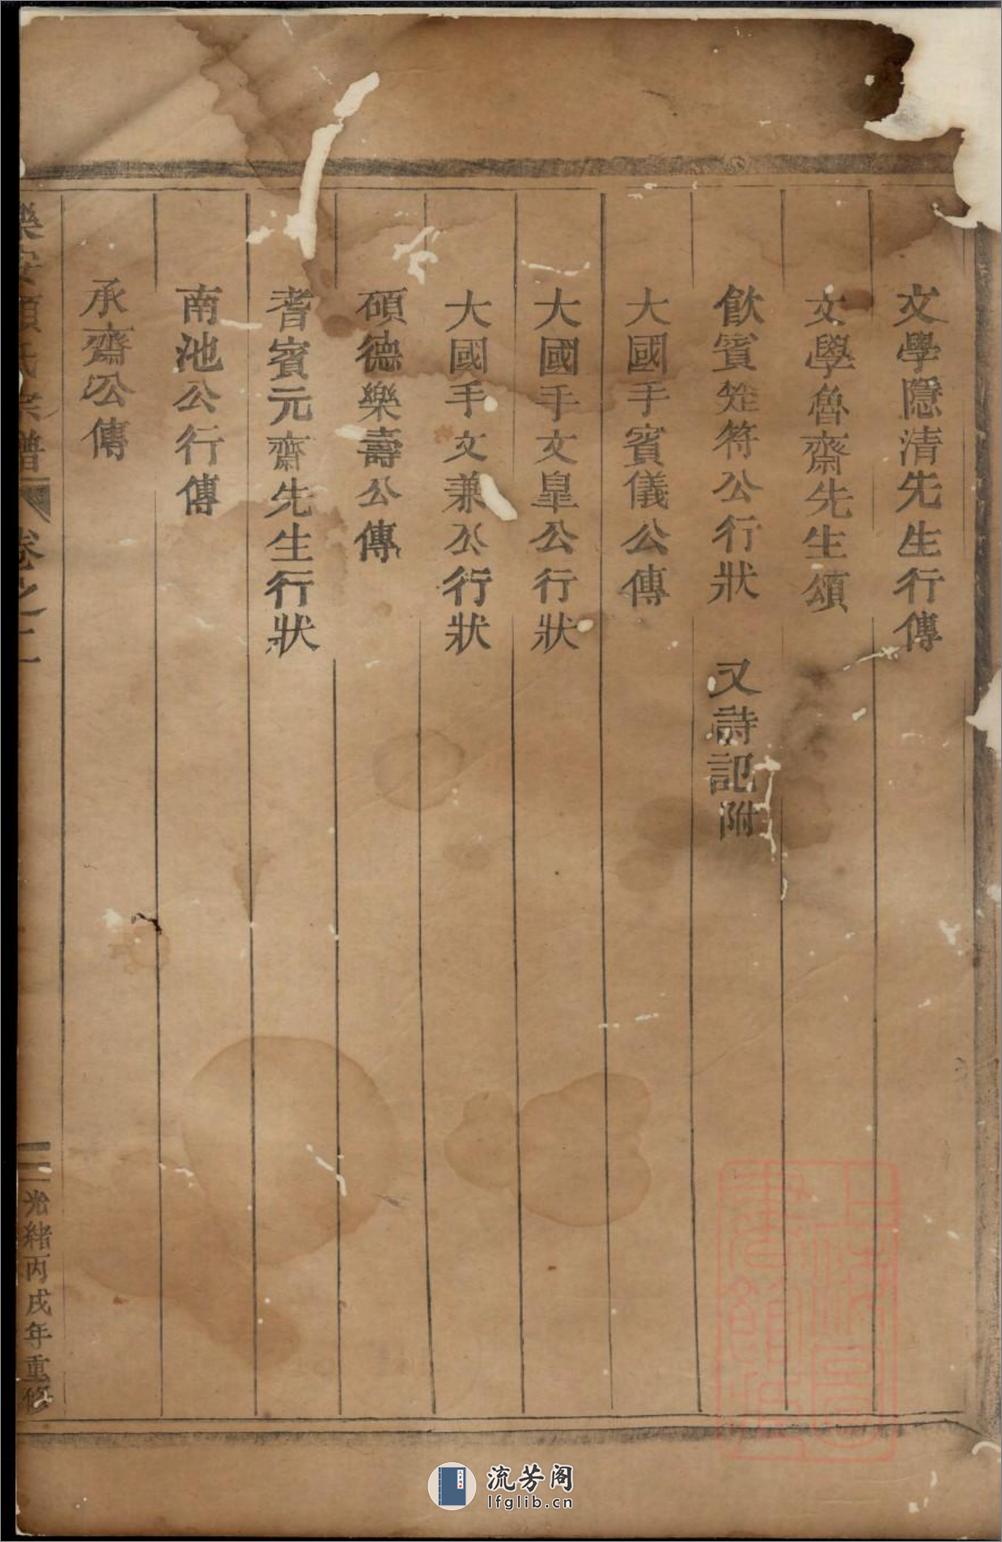 文學隱清先生行傳
文學魯齋先生頌
飲賓筵符公行狀　又詩記附
大國手賓儀公傳
大國手文皇公行狀
大國手文兼公行狀
碩德樂壽公傳
耆賓元齋先生行狀
南池公行傳
承齋公傳
樂安 氏宗譜　卷之
光緒丙戌年重修
上海圖書館藏
流芳阁
lfglib.cn